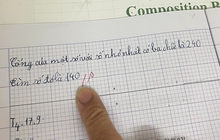 Composition B
Tổng của một số với số nhỏ nhất có ba chữ số là 240
Tìm số đó là 140
T4. 17.9